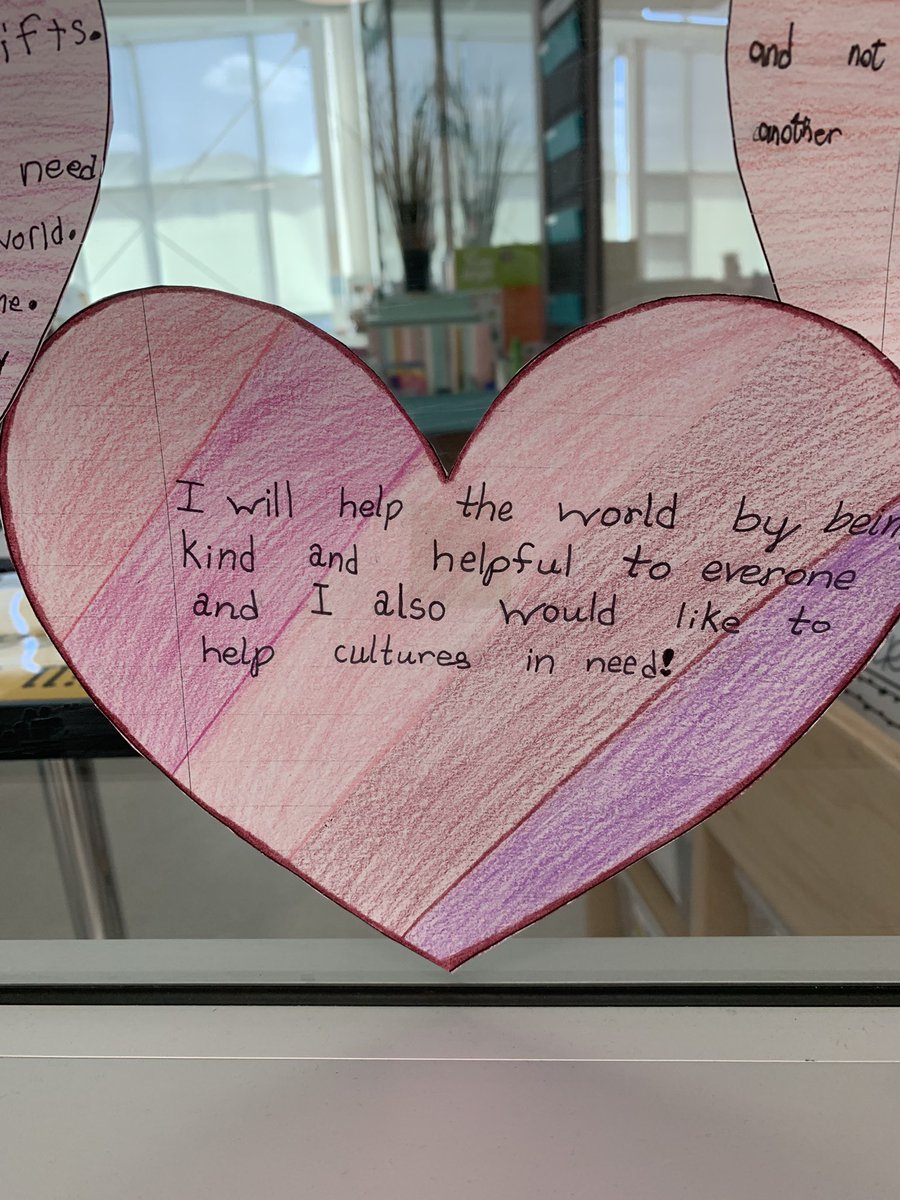 ifts.
need
world.
and not
another
I will help the world by bein
kind and helpful to everone
and I also would like to
help cultures in need!